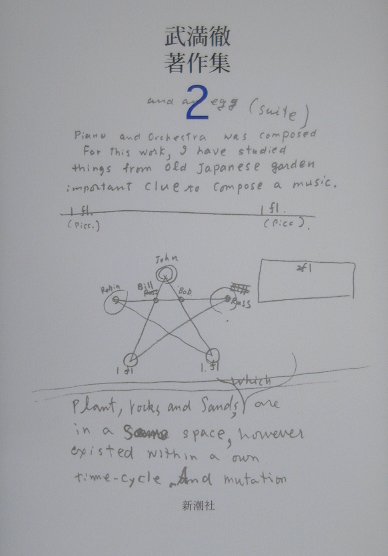 武満徹
著作集
2
and an egg (suite)
Piano and Orchestra was composed
For this work, I have studied
things from old Japanese garden
important clue to compose a music.
1 fl. 1 fl.
(Picc.) (Picc.)
John
Robin Bill Bob Russ
2fl
1. fl 1. fl
which
plant, rocks and sands, are
in a space, however
existed within a own
time-cycle. And mutation
新潮社